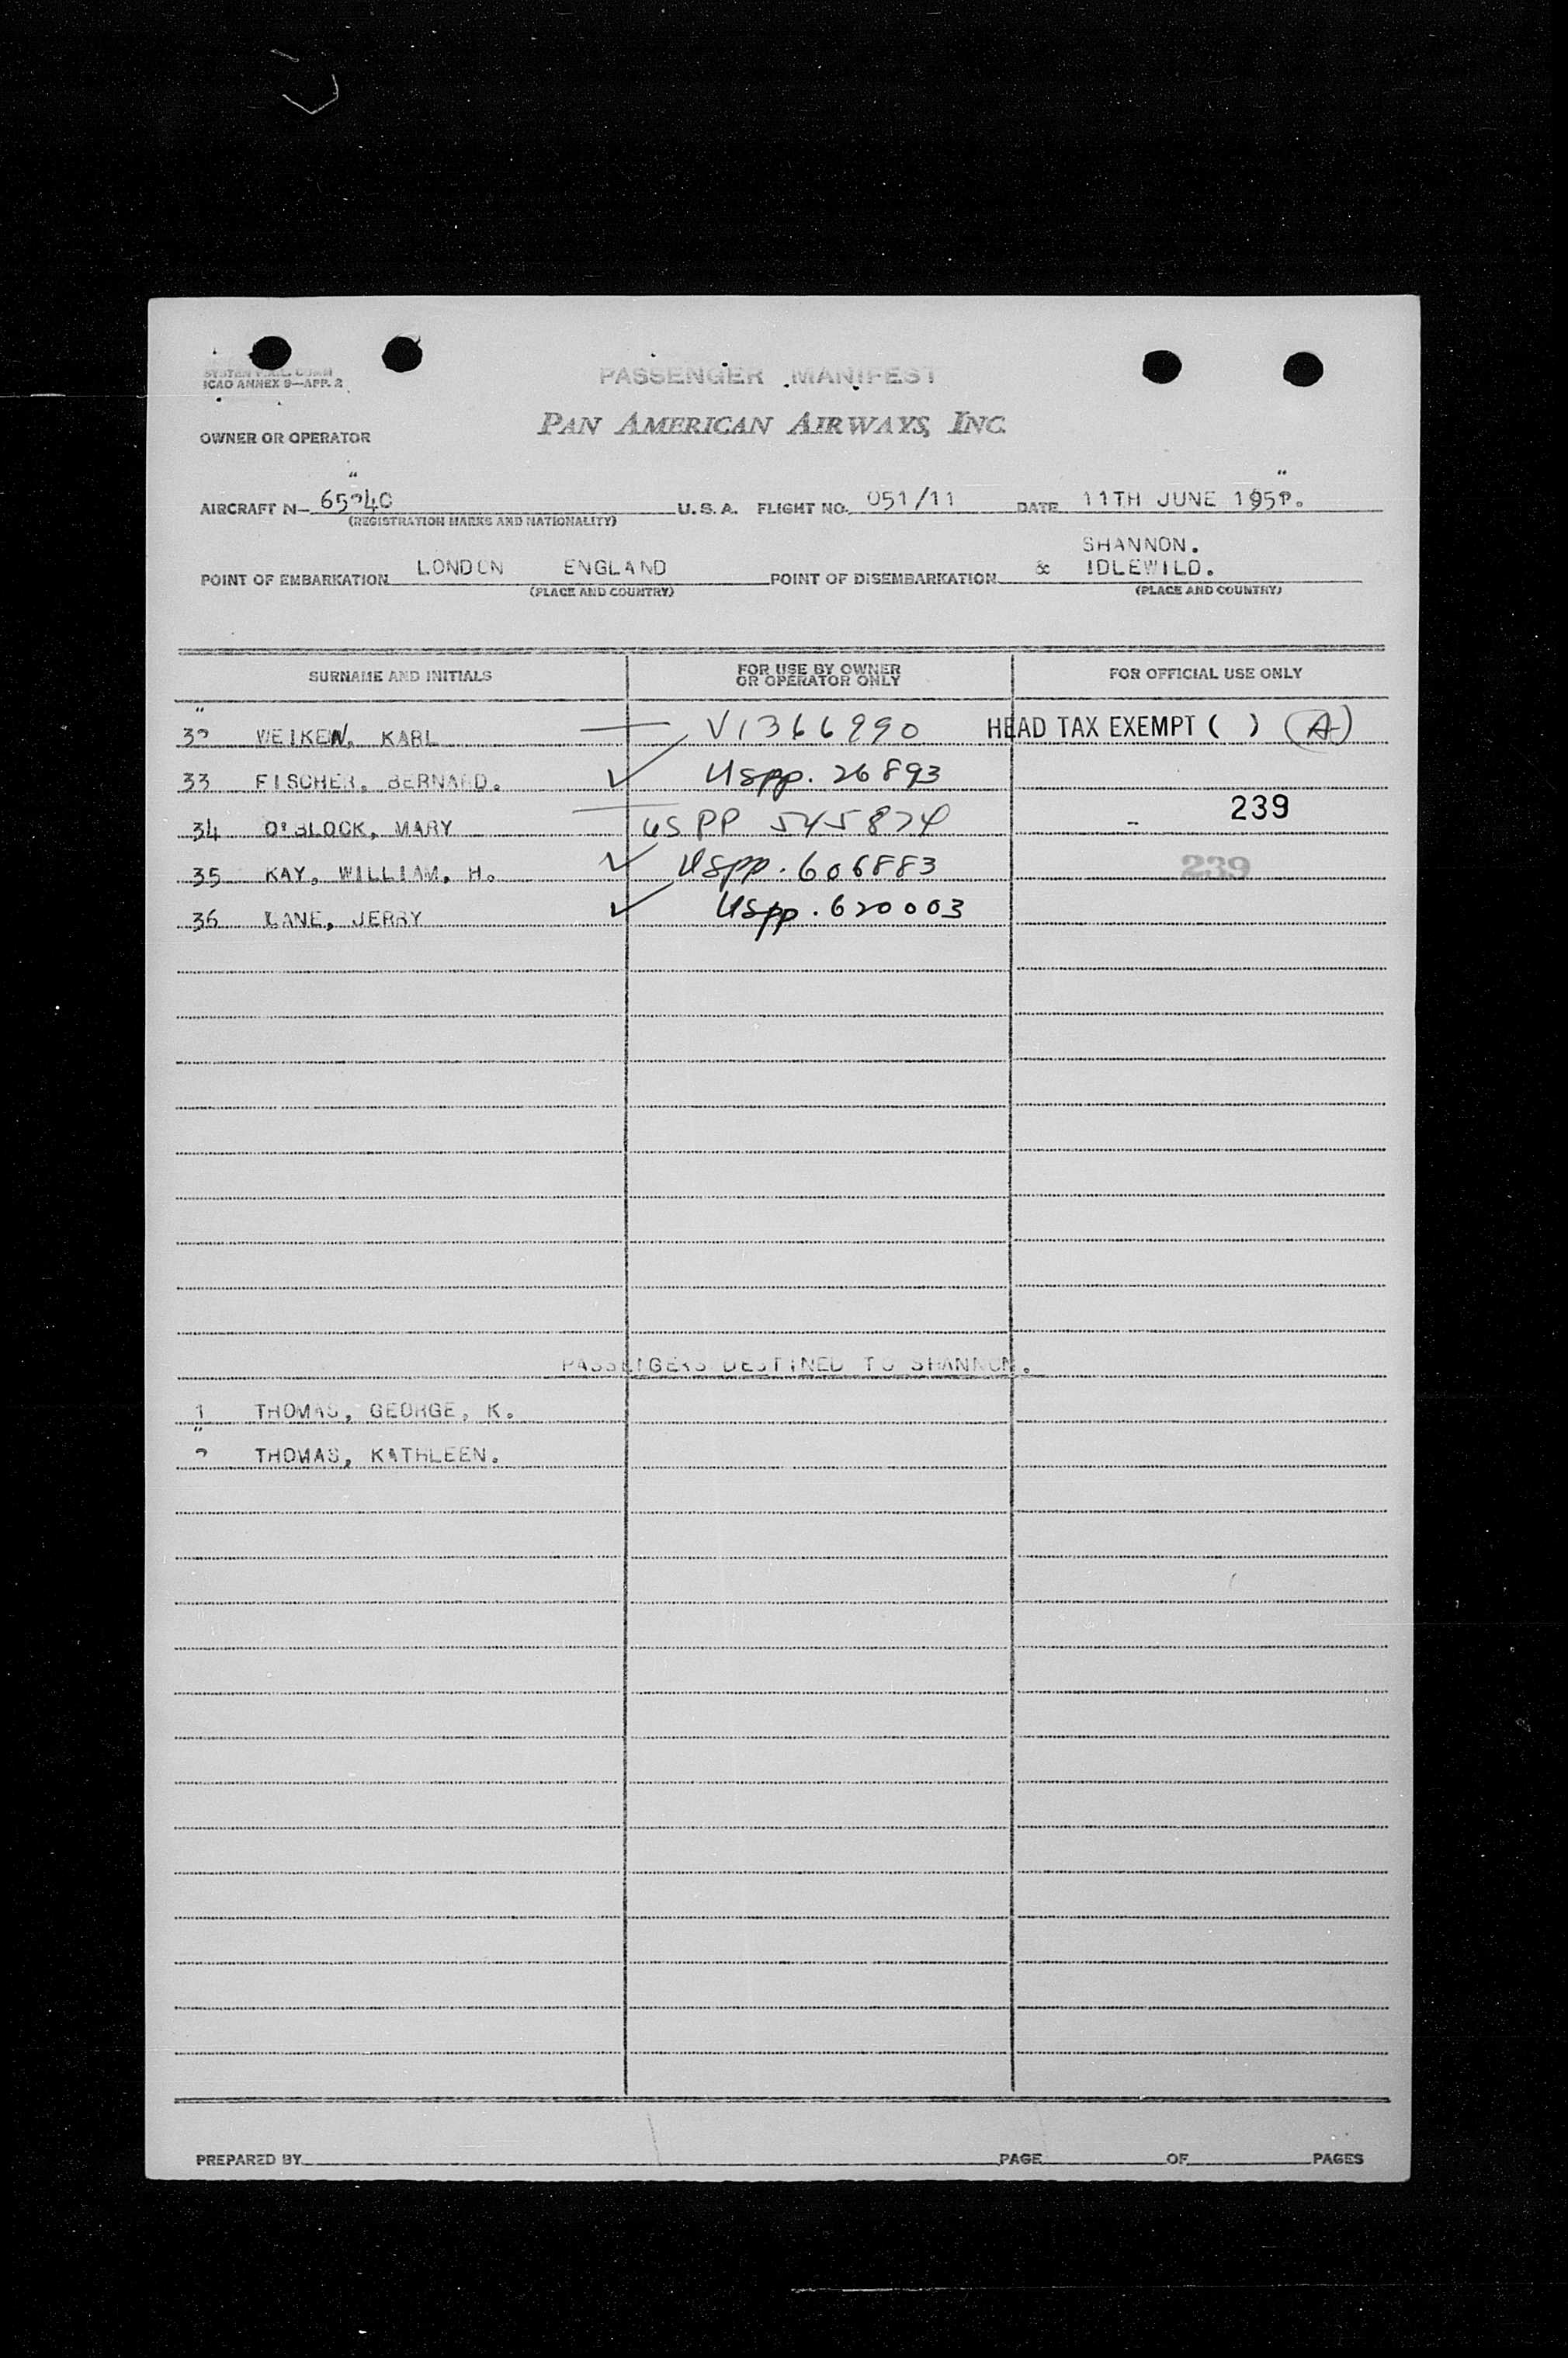 ICAO ANNEX 9—APP. 2
PASSENGER MANIFEST
PAN AMERICAN AIRWAYS, INC.
OWNER OR OPERATOR
AIRCRAFT N— U.S.A. FLIGHT NO. 051/11 DATE 11TH JUNE
(REGISTRATION MARKS AND NATIONALITY)
SHANNON.
POINT OF EMBARKATION LONDON ENGLAND POINT OF DISEMBARKATION & IDLEWILD.
(PLACE AND COUNTRY) (PLACE AND COUNTRY)
SURNAME AND INITIALS FOR USE BY OWNER OR OPERATOR ONLY FOR OFFICIAL USE ONLY
WEIKEN, KARL V1366990 HEAD TAX EXEMPT ( ) (A)
33 FISCHER, BERNARD. ✓ USpp. 26893
34 O'BLOCK, MARY US PP 545874 239
35 KAY, WILLIAM, H. ✓ USpp. 606883 239
36 LANE, JERRY ✓ USpp. 620003
PASSENGERS DESTINED TO SHANNON.
1 THOMAS, GEORGE, K.
THOMAS, KATHLEEN.
PREPARED BY PAGE OF PAGES